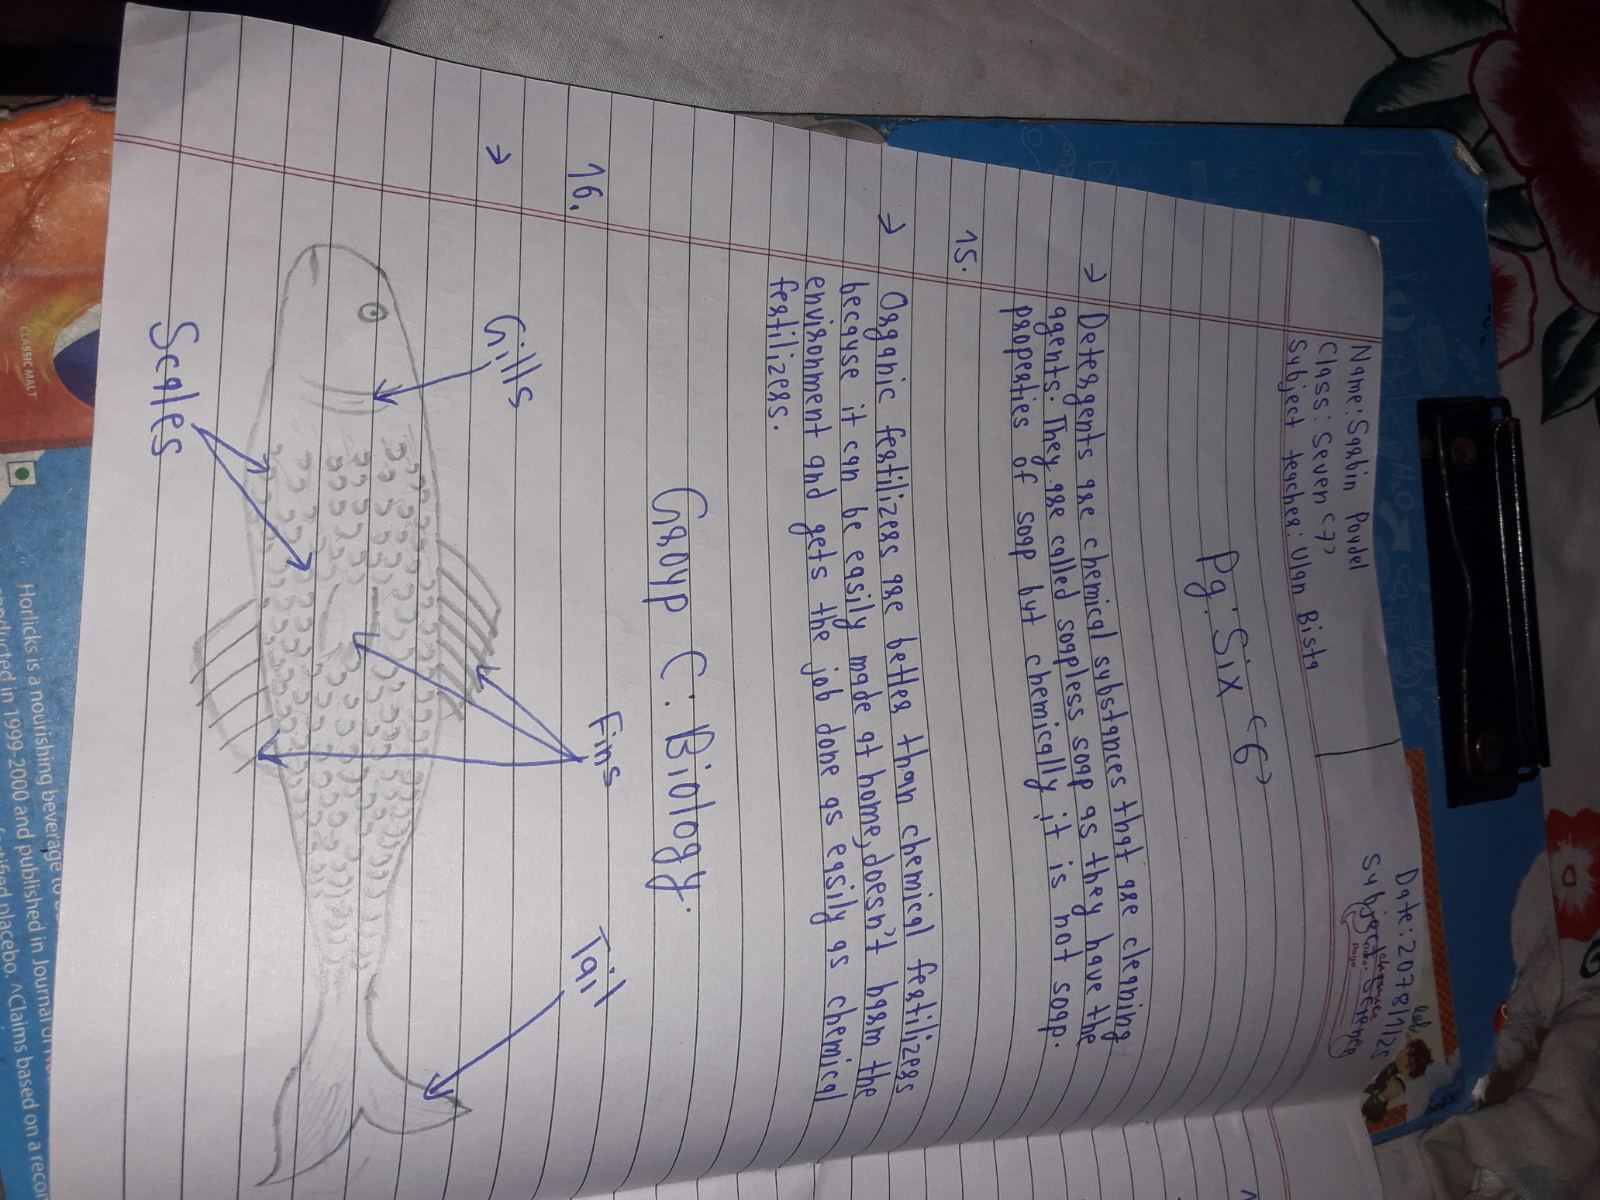 Name: Sarbin Poudel
Class: Seven <7>
Subject teacher: Ulan Bista
Date: 2078/1/25
Subject: Science
Pg: Six <6>
→ Detergents are chemical substances that are cleaning
agents. They are called soapless soap as they have the
properties of soap but chemically it is not soap.
15.
→ Organic fertilizers are better than chemical fertilizers
because it can be easily made at home, doesn't harm the
environment and gets the job done as easily as chemical
fertilizers.
Group C: Biology.
16.
→
Gills
Fins
Tail
Scales
CLASSIC MALT
Horlicks is a nourishing beverage to
conducted in 1999-2000 and published in Journal of
placebo. ^Claims based on a